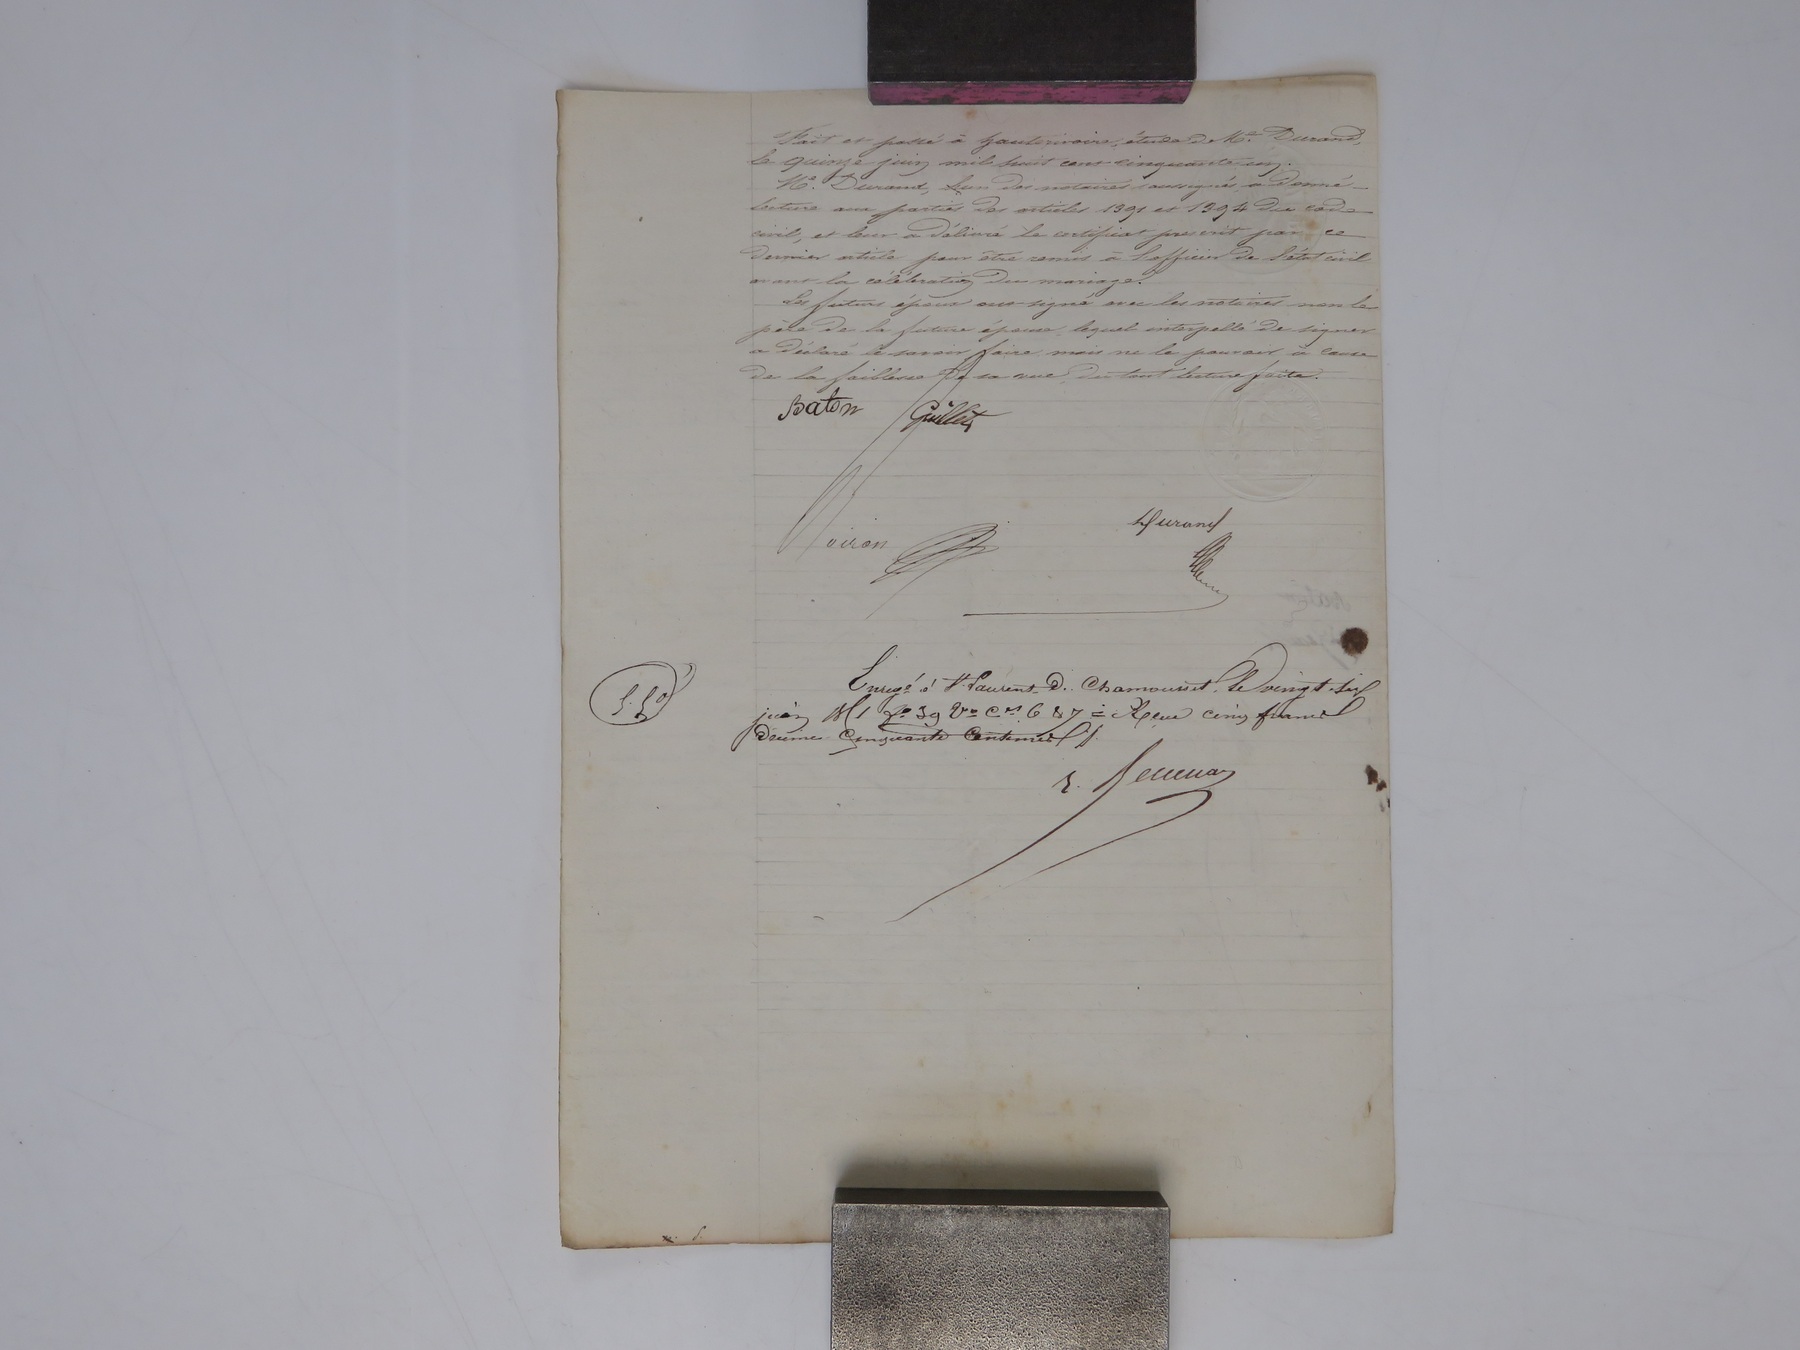 Fait et passé à hauterivoire, étude de Me. Durand,
le quinze juin mil huit cent cinquante un.
Me. Durand, l'un des notaires soussignés a donné
lecture aux parties des articles 1391 et 1394 du code
civil, et leur a délivré le certificat prescrit par ce
dernier article pour être remis à l'officier de l'état civil
avant la célébration du mariage.
Les futurs époux ont signé avec les notaires non le
père de la future épouse, lequel interpellé de signer
a déclaré le savoir faire mais ne le pouvoir à cause
de la faiblesse de sa vue, du tout lecture faite.
Baton Guillet
Voiron
Durand
Enregé à St Laurent D. Chamousset, le vingt six
juin 1851 fo 39 Vo Ces 6 & 7 = Reçu cinq francs
Décime Cinquante Centimes
5.50